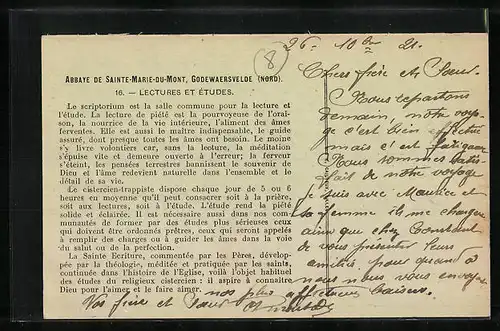 26 - 10bre 21.
8
ABBAYE DE SAINTE-MARIE-DU-MONT, GODEWAERSVELDE (NORD).
16. — LECTURES ET ÉTUDES.
Le scriptorium est la salle commune pour la lecture et
l'étude. La lecture de piété est la pourvoyeuse de l'orai-
son, la nourrice de la vie intérieure, l'aliment des âmes
ferventes. Elle est aussi le maître indispensable, le guide
assuré, dont presque toutes les âmes ont besoin. Le moine
s'y livre volontiers car, sans la lecture, la méditation
s'épuise vite et demeure ouverte à l'erreur; la ferveur
s'éteint, les pensées terrestres bannissent le souvenir de
Dieu et l'âme redevient naturelle dans l'ensemble et le
détail de sa vie.
Le cistercien-trappiste dispose chaque jour de 5 ou 6
heures en moyenne qu'il peut consacrer soit à la prière,
soit aux lectures, soit à l'étude. L'étude rend la piété
solide et éclairée. Il est nécessaire aussi dans nos com-
munautés de former par des études plus sérieuses ceux
qui doivent être ordonnés prêtres, ceux qui seront appelés
à remplir des charges ou à guider les âmes dans la voie
du salut ou de la perfection.
La Sainte Ecriture, commentée par les Pères, dévelop-
pée par la théologie, méditée et pratiquée par les saints,
continuée dans l'histoire de l'Eglise, voilà l'objet habituel
des études du religieux cistercien : il aspire à connaître
Dieu pour l'aimer et le faire aimer.
Chers frère et Sœur
Nous repartons
demain, notre voya-
ge c'est bien
mais c'est fatigant
Nous sommes satis-
fait de notre voyage
je suis avec Maurice et
sa femme ils me charge
ainsi que chez Constant
de vous présenter leurs
amitiés, pour quand à
nous nous vous envoyons
nos plus affectueux baisers.
Vos frère et Sœur